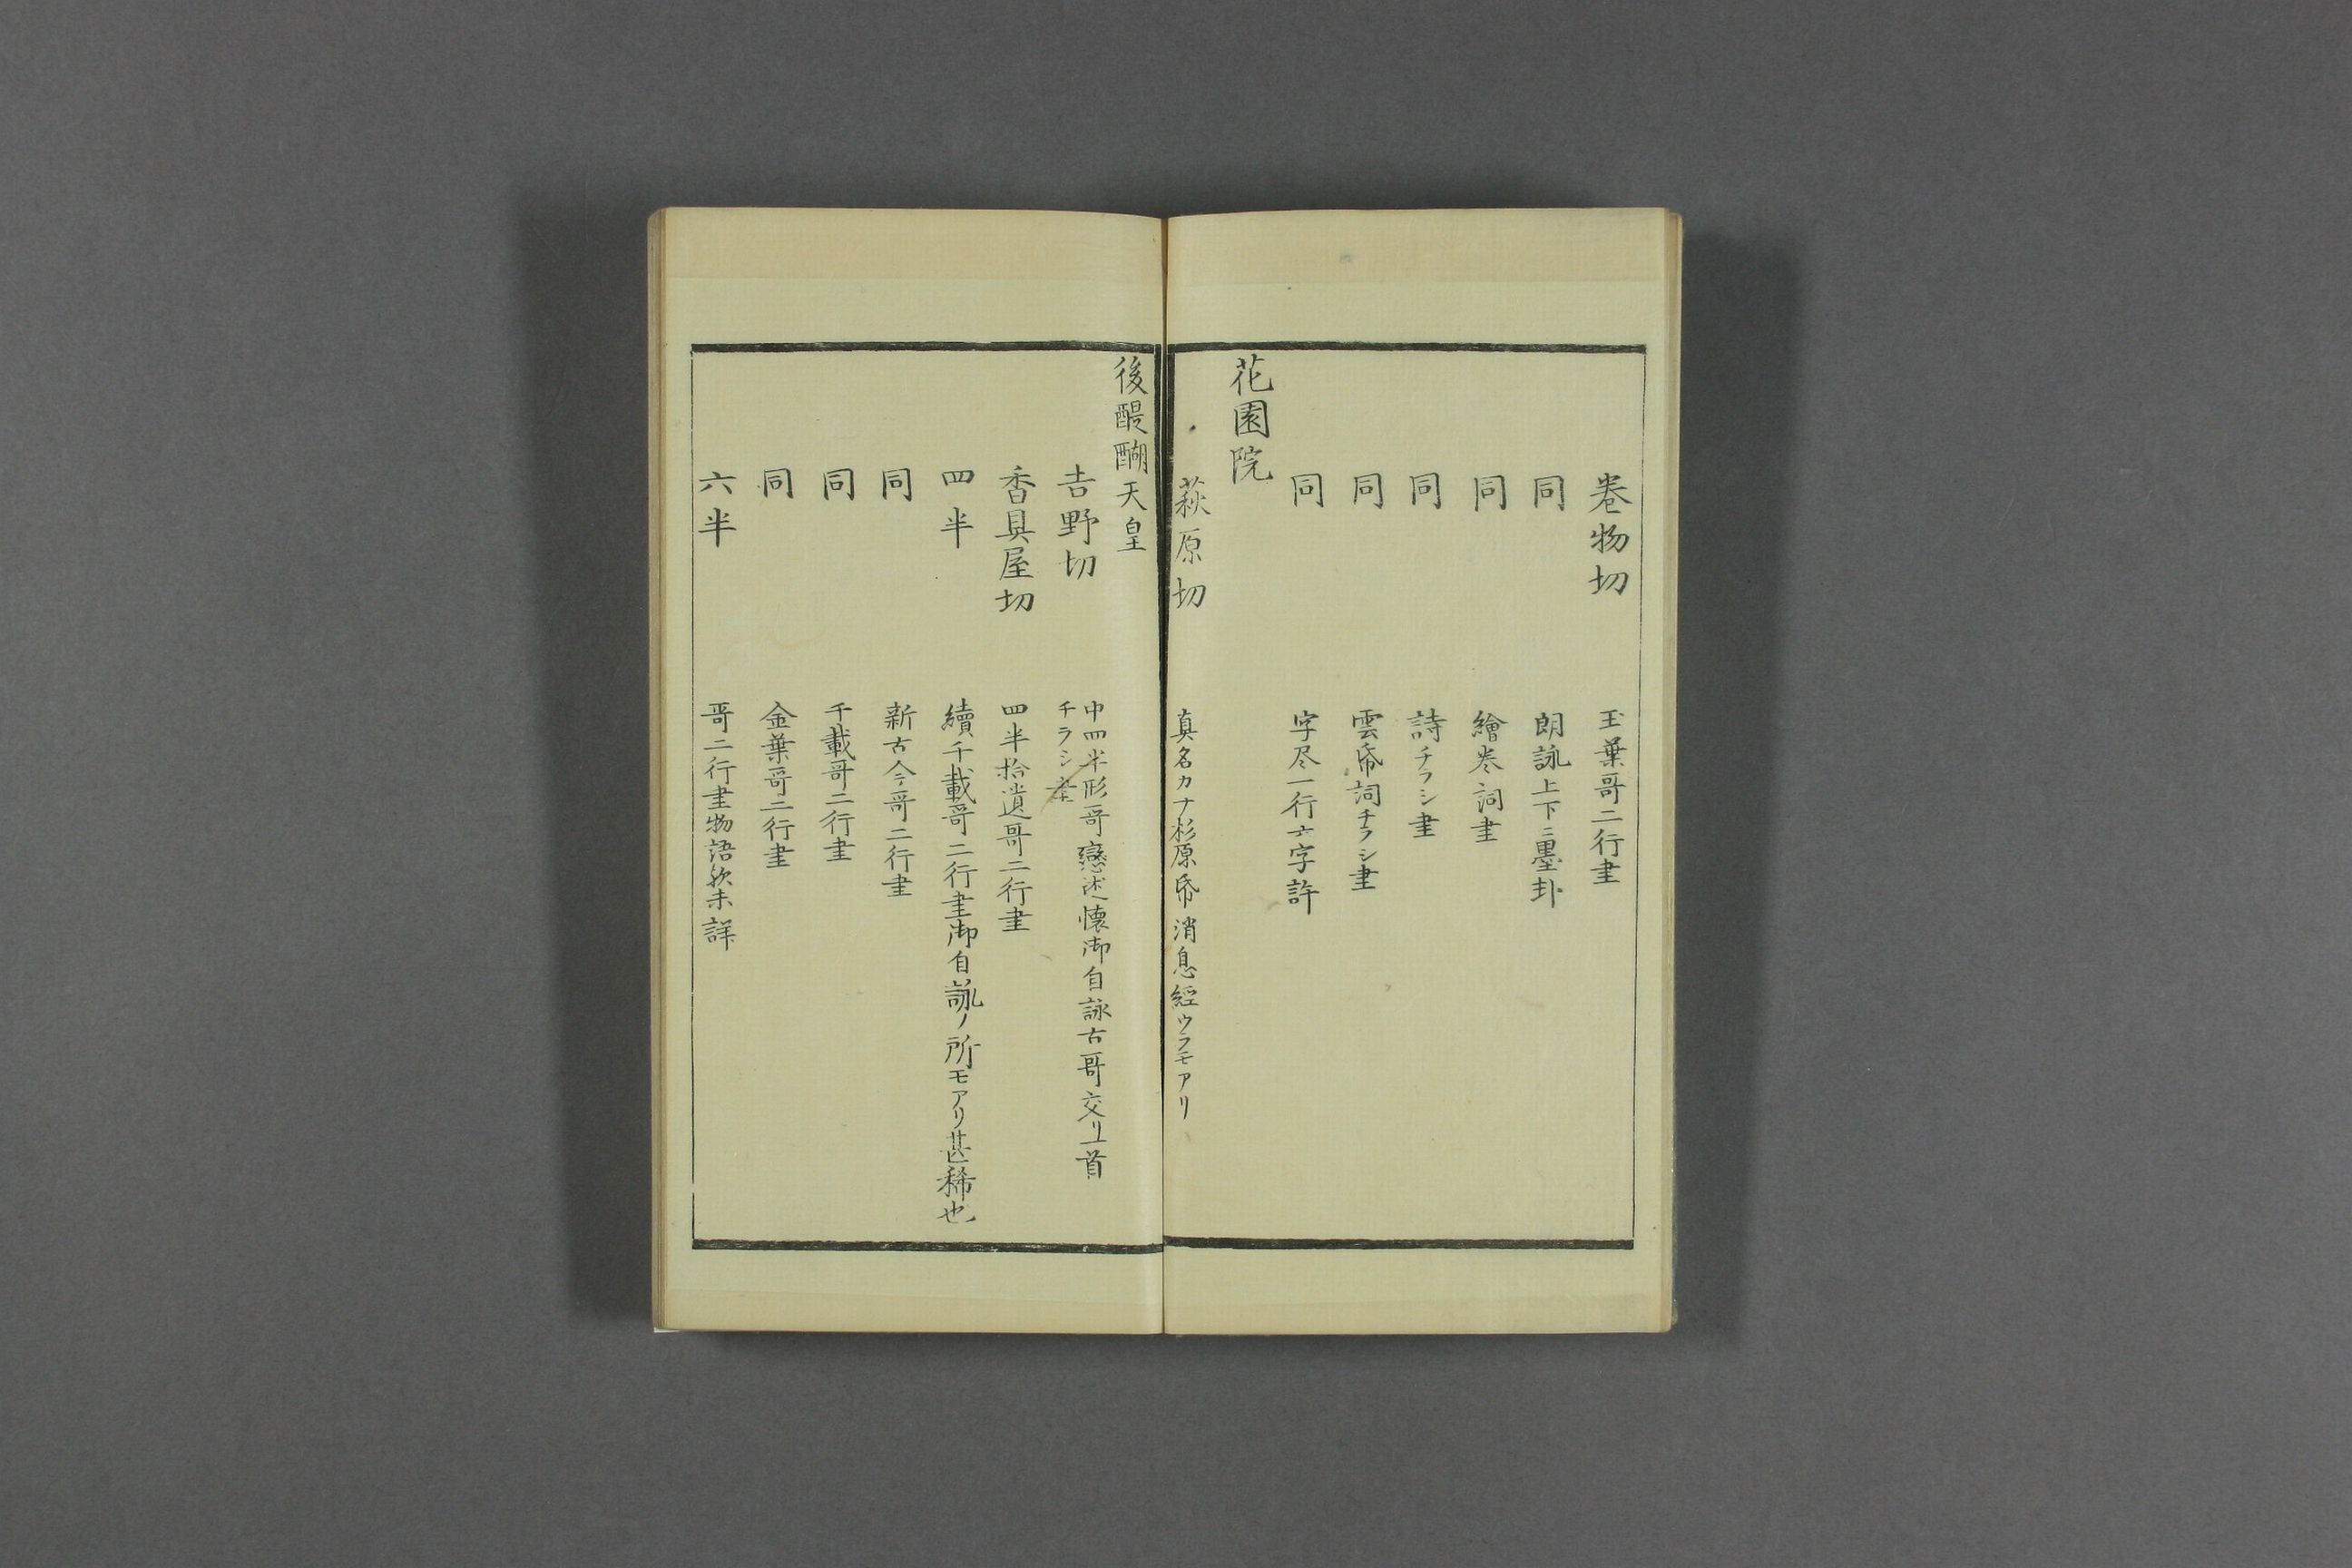 巻物切 玉葉哥二行書
同 朗詠上下ニ墨卦
同 繪巻詞書
同 詩チラシ書
同 雲帋詞チラシ書
同 字尽一行六字許
花園院
萩原切 真名カナ杉原帋消息經ウラモアリ
後醍醐天皇
吉野切 中四半形哥戀述懐御自詠古哥交リ一首
チラシ書
香具屋切 四半拾遺哥二行書
四半 續千載哥二行書御自詠ノ所モアリ甚稀也
同 新古今哥二行書
同 千載哥二行書
同 金葉哥二行書
六半 哥二行書物語歟未詳